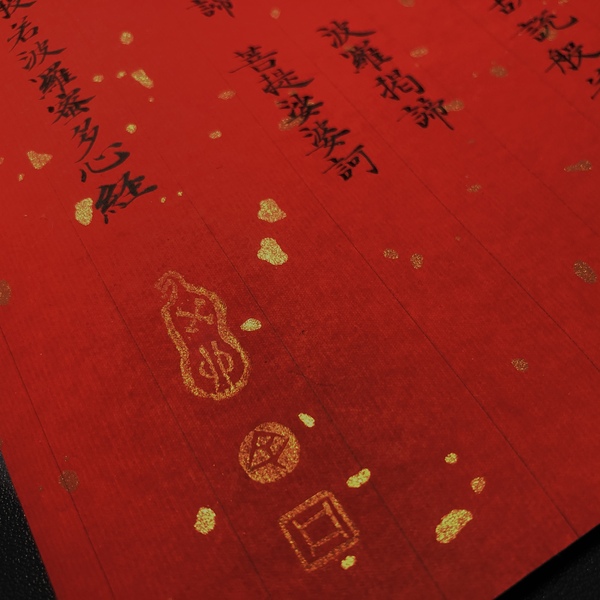 故說般
波羅揭諦
菩提娑婆訶
諦
般若波羅蜜多心経